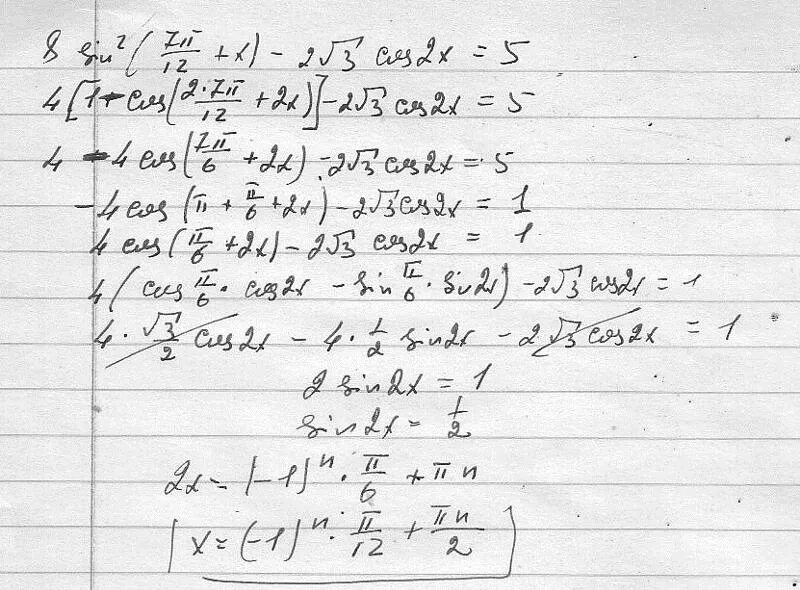 8 sin²(7π/12 + x) - 2√3 cos2x = 5
4[1 - cos(2·7π/12 + 2x)] - 2√3 cos2x = 5
4 - 4 cos(7π/6 + 2x) - 2√3 cos2x = 5
-4 cos(π + π/6 + 2x) - 2√3 cos2x = 1
4 cos(π/6 + 2x) - 2√3 cos2x = 1
4(cos π/6 · cos2x - sin π/6 · sin2x) - 2√3 cos2x = 1
4 · √3/2 cos2x - 4 · 1/2 sin2x - 2√3 cos2x = 1
2 sin2x = 1
sin2x = 1/2
2x = (-1)ⁿ · π/6 + πn
x = (-1)ⁿ · π/12 + πn/2